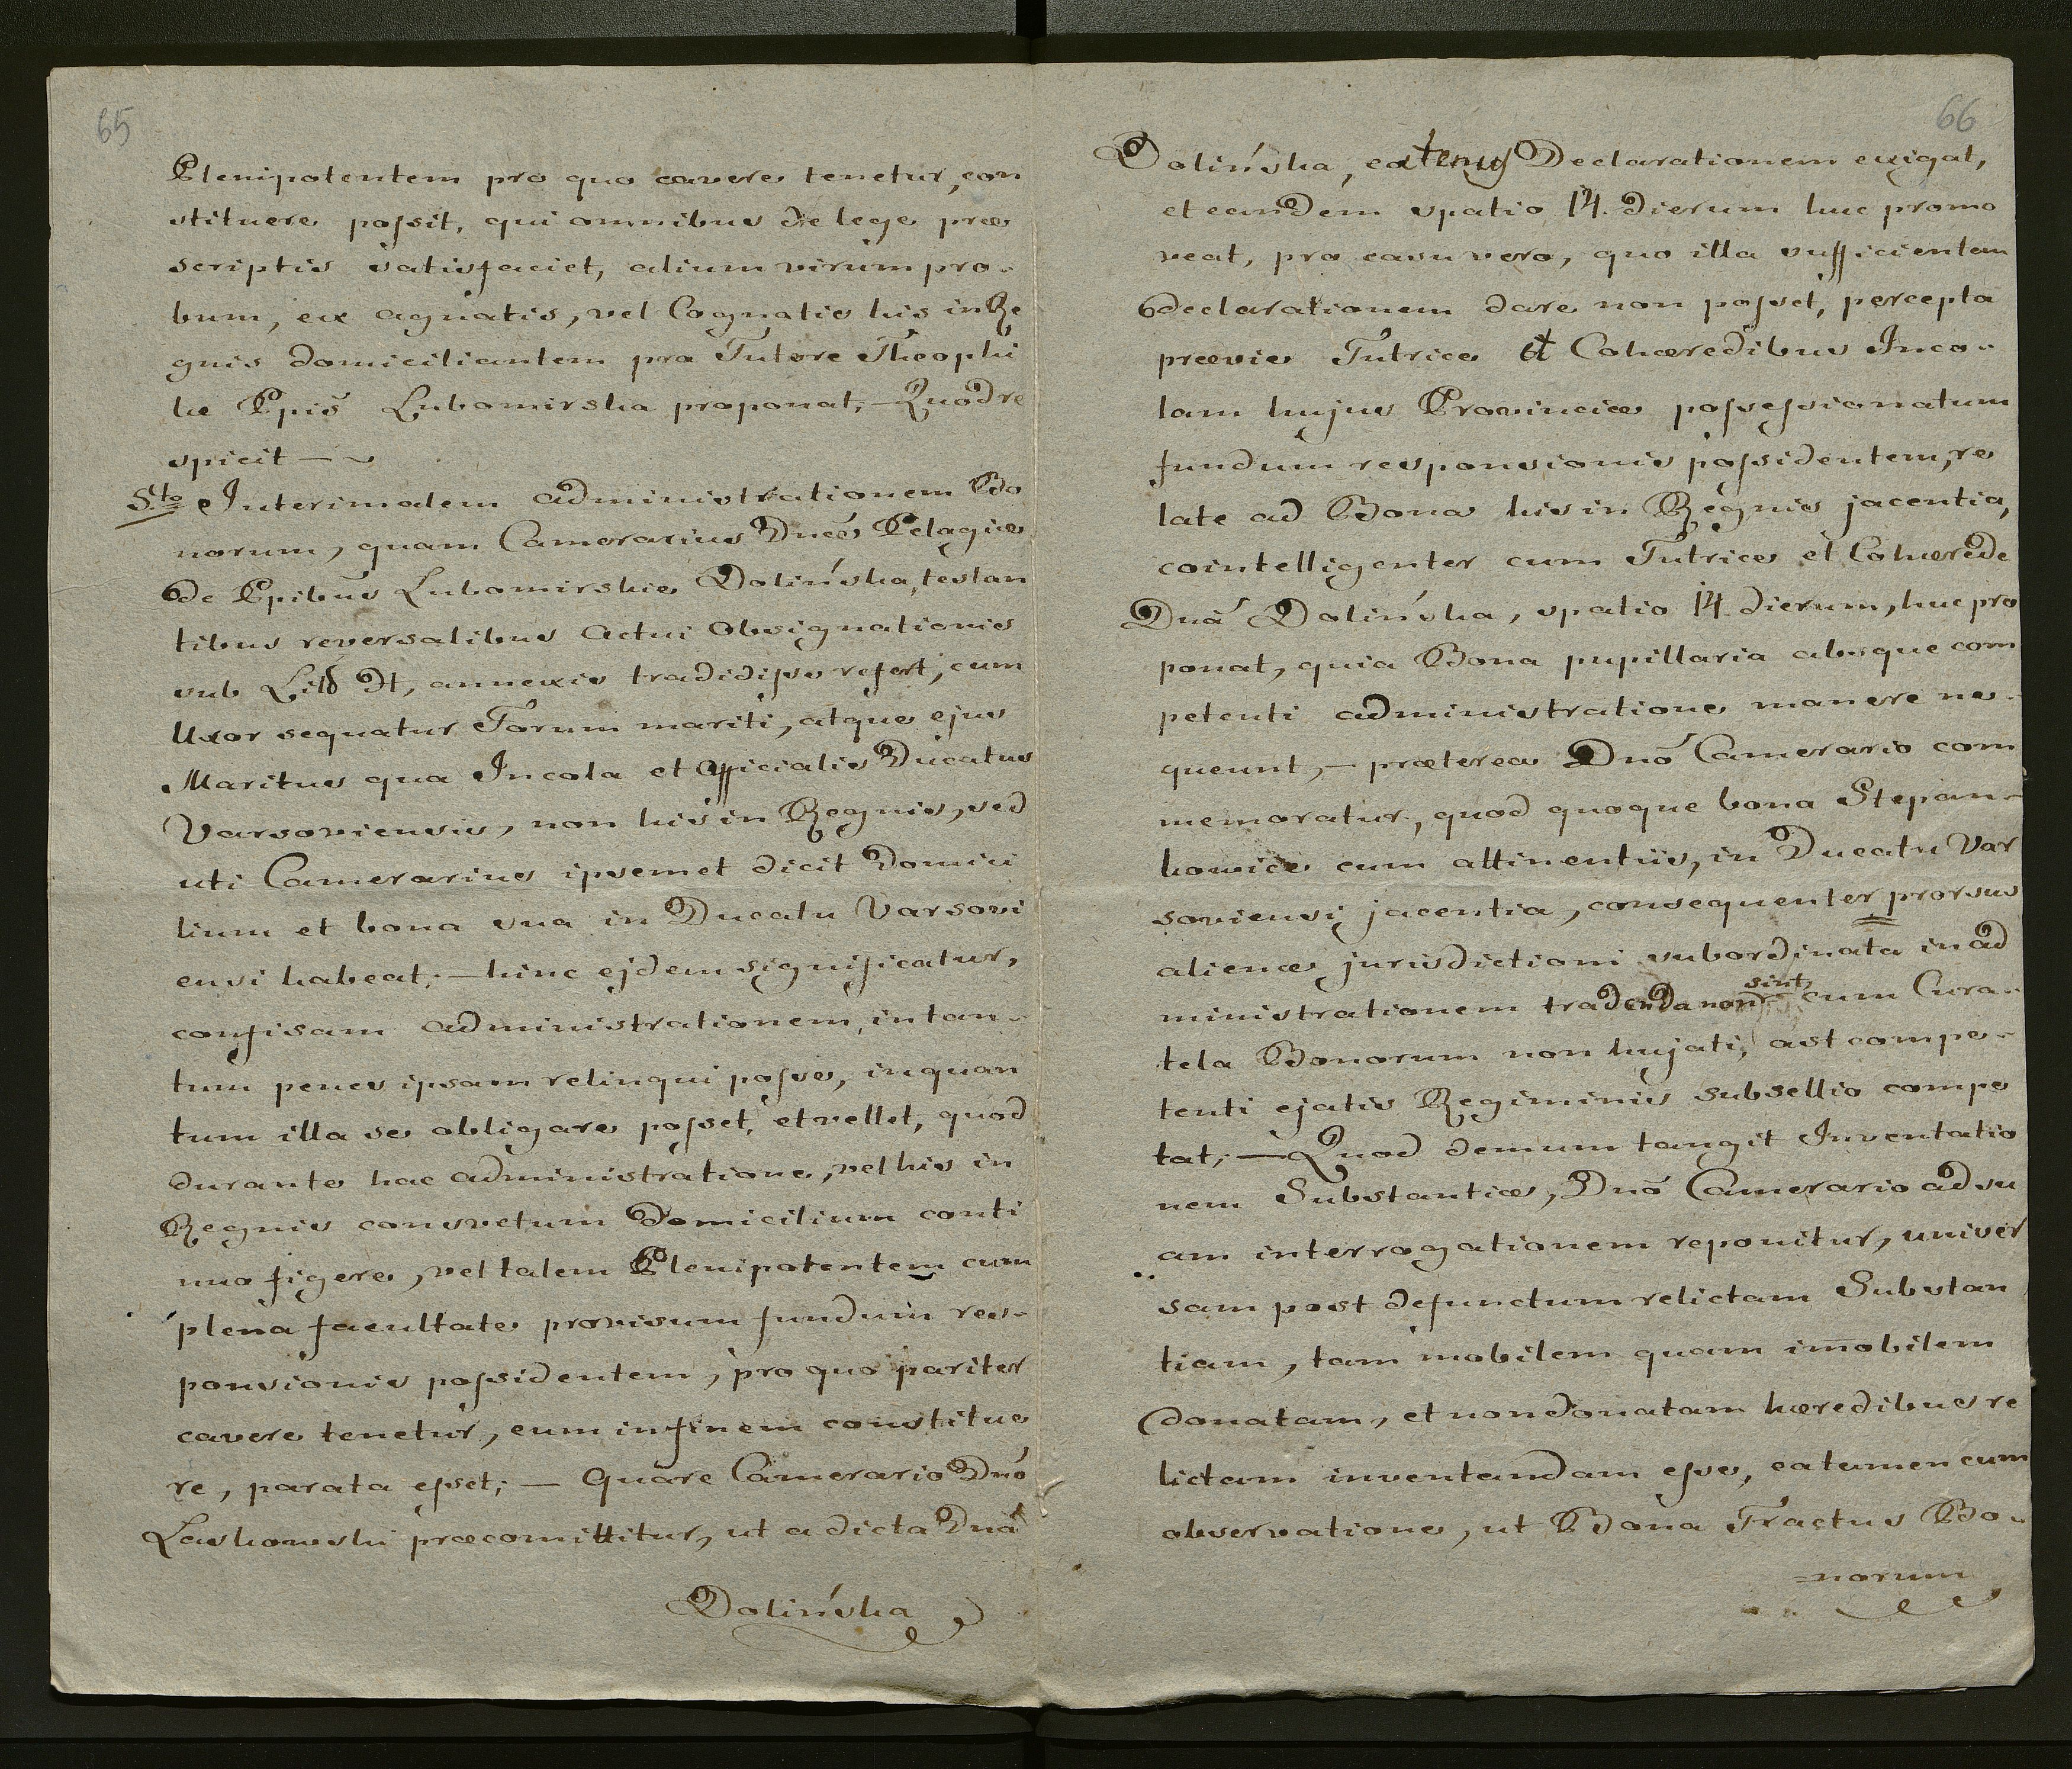 65
Plenipotentem pro quo cavere tenetur, con
stituere possit, qui omnibus de lege præ
scriptis satisfaciet, alium virum pro-
bum, ex agnatis, vel Cognatis his in Re
gnis domiciliantem pro Tutore Theophi
læ Ppis Lubomirska proponat; – Quod re
spicit —
5to Interimalem administrationem Bo
norum, quam Camerarius Dnæ Pelagiæ
de Ppibus Lubomirskie Dolińska, testan
tibus reversalibus actui obsignationis
sub annexis tradidisse refert, cum
Uxor sequatur Forum mariti, atque ejus
Maritus qua Incola et Officialis Ducatus
Varsoviensis, non his in Regnis, sed
uti Camerarius ipsemet dicit Domici
lium et bona sua in Ducatu Varsovi
ensi habeat; – hinc ejdem significatur,
confisam administrationem, in tan-
tum penes ipsam relinqui posse, in quan
tum illa se obligare posset, et vellet, quod
durante hac administratione, vel his in
Regnis consvetum Domicilium conti
nuo figere, vel talem Plenipotentem cum
plena facultate provisum fundum res-
ponsionis possidentem, pro quo pariter
cavere tenetur, eum in finem constitue
re, parata esset; — Quare Camerario Dno
Laskowski præcomittitur, ut a dicta Dnã
Dolińska
66
Dolińska, eatenus Declarationem exigat,
et eandem spatio 14. dierum huc promo
veat, pro casu vero, quo illa sufficientem
declarationem dare non posset, percepta
prævie Tutrice et Cohæredibus Inco-
lam hujus Provinciæ possessionatum
fundum responsionis possidentem, re
late ad Bona his in Regnis jacentia,
cointelligenter cum Tutrice et Cohærede
Dnã Dolińska, spatio 14 dierum, huc pro
ponat, quia Bona pupillaria absque com
petenti administratione manere ne-
queunt, – præterea Dno Camerario com
memoratur, quod quoque bona Stepan-
kowice cum attinentiis, in Ducatu Var
soviensi jacentia, consequenter prorsus
alienæ jurisdictioni subordinata in ad
sint
ministrationem tradenda non cum Cura-
tela Bonorum non hujati, ast compe-
tenti ejatis Regiminis Subsellio compe
tat; – Quod demum tangit Inventatio
nem Substantiæ, Dno Camerario ad su
am interrogationem reponitur, univer
sam post defunctum relictam Substan
tiam, tam mobilem quam im̄obilem
donatam, et non donatam hæredibus re
lictam inventandam esse, ea tamen cum
observatione, ut Bona Tractus Bo-
=norum